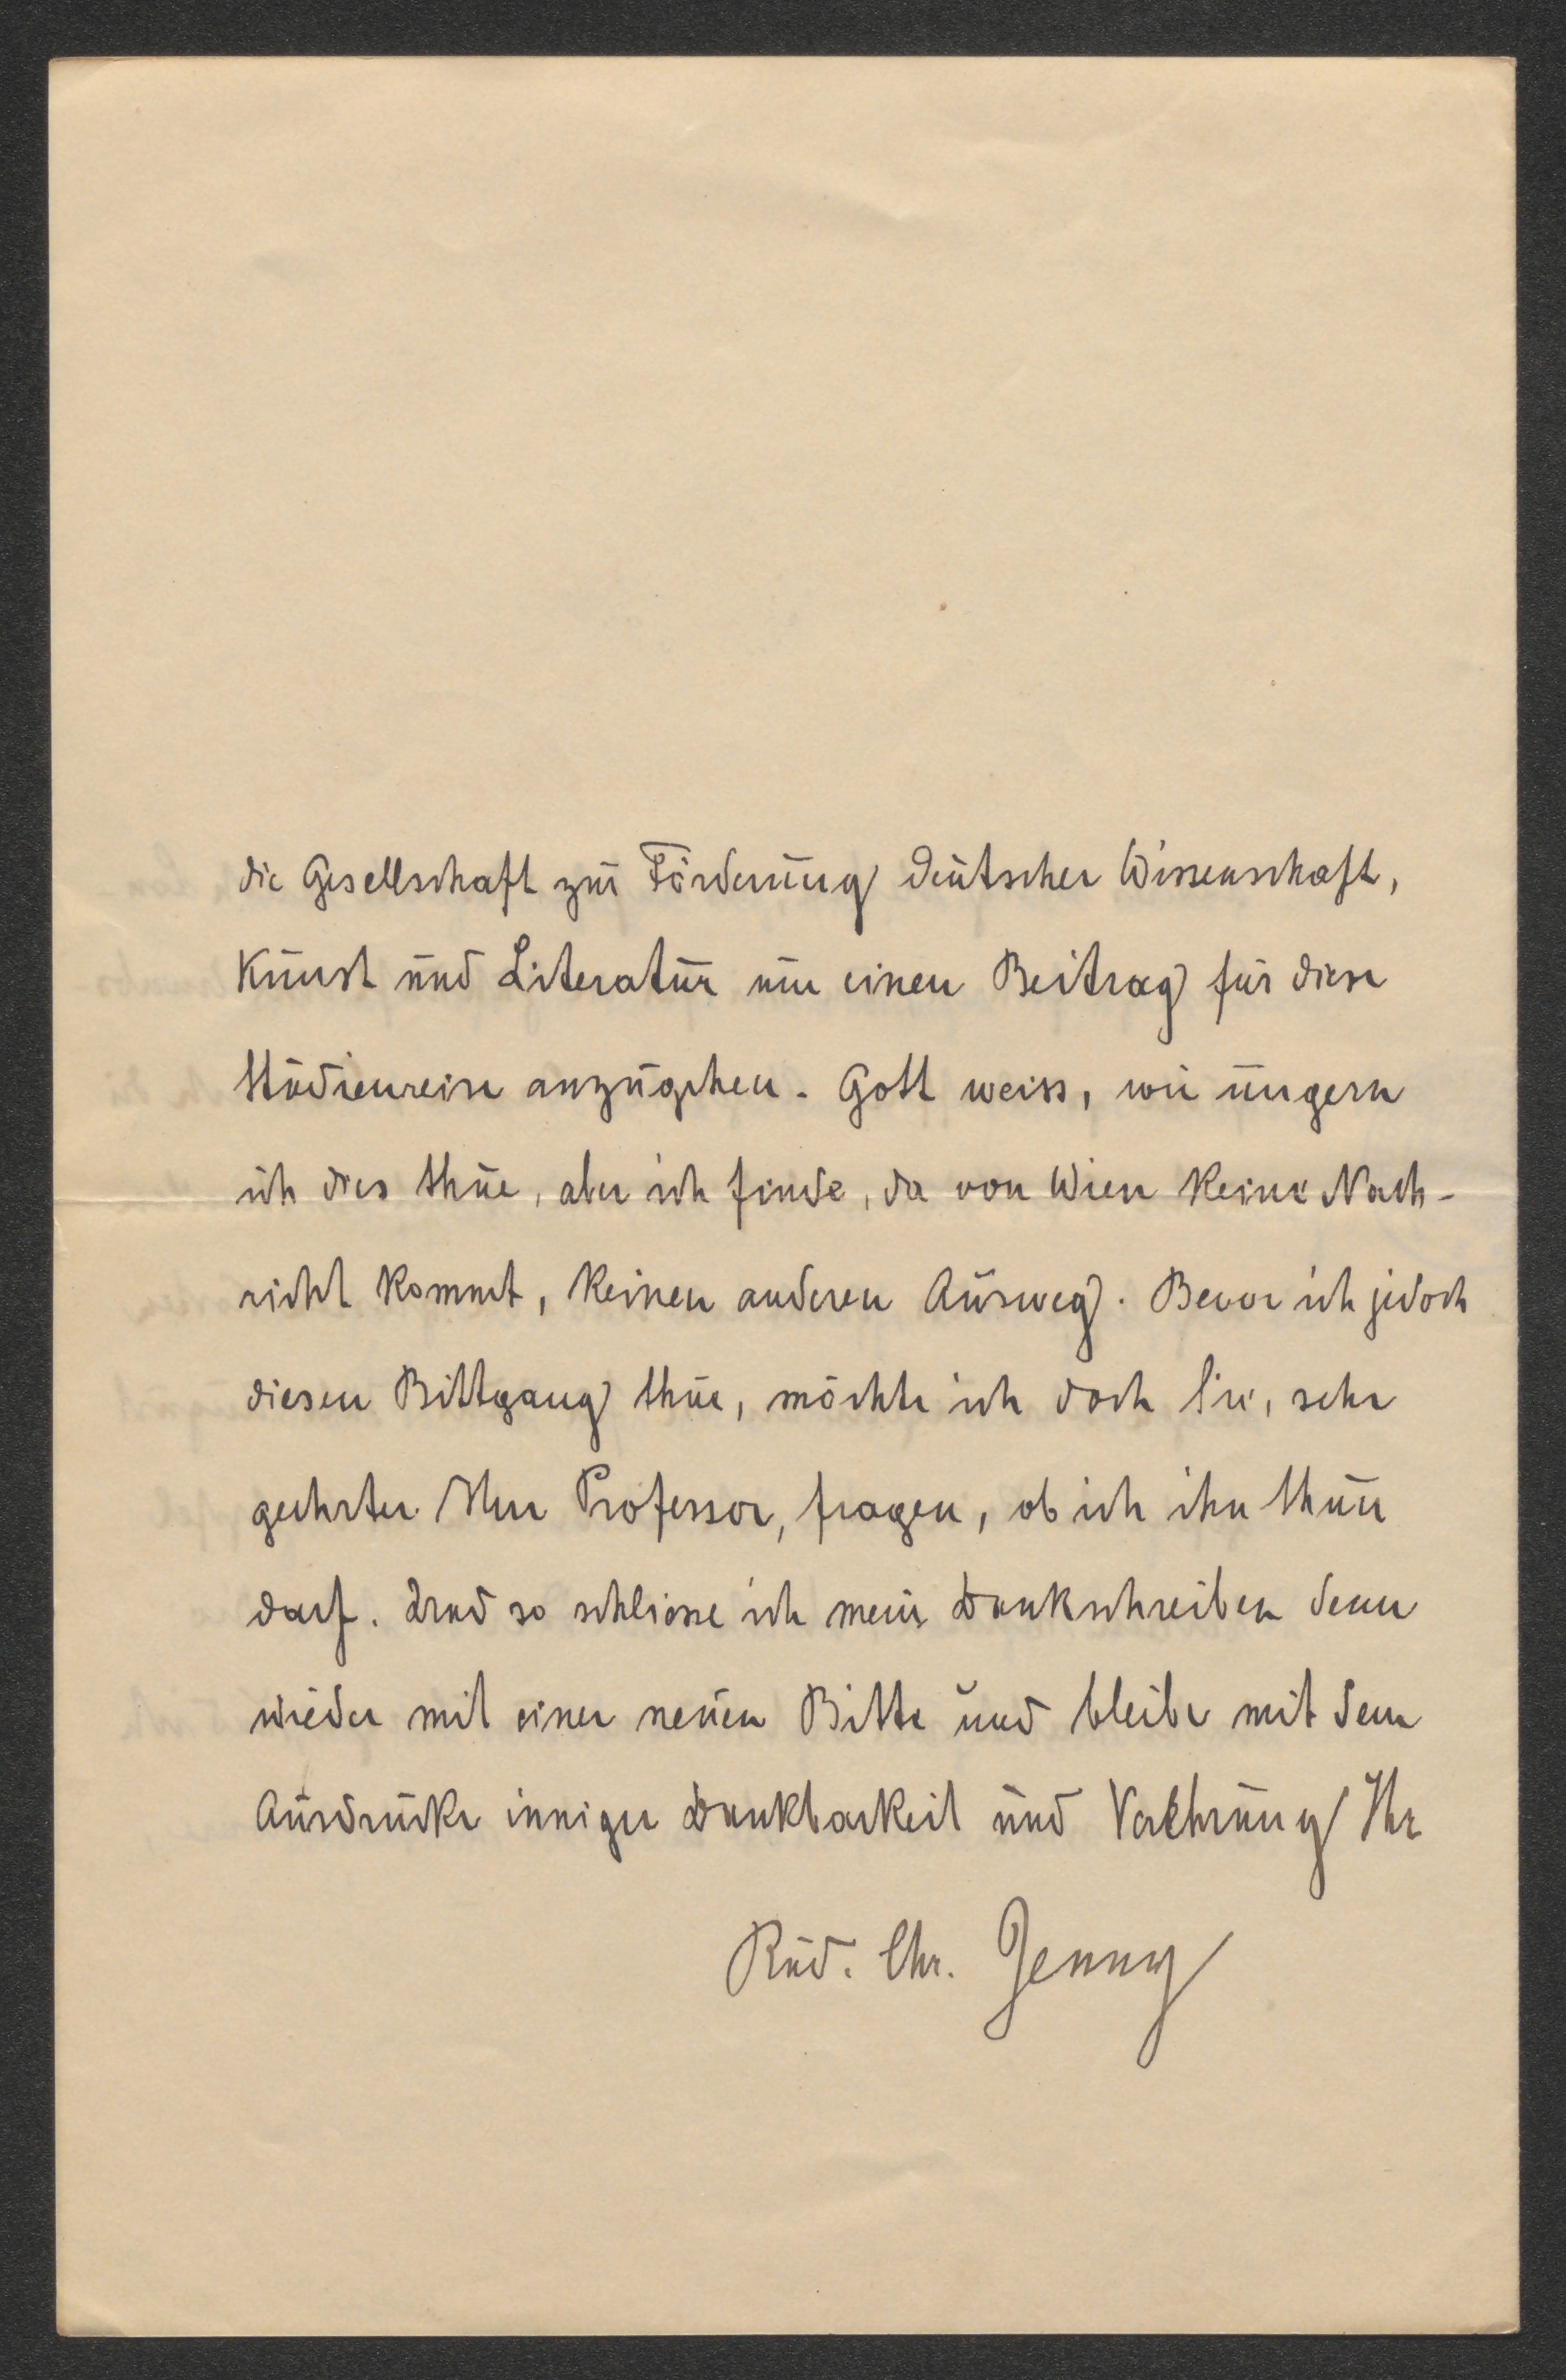 die Gesellschaft zur Förderung deutscher Wissenschaft,
Kunst und Literatur um einen Beitrag für diese
Studienreise anzugehen. Gott weiss, wie ungern
ich dies thue, aber ich finde, da von Wien keine Nach-
richt kommt, keinen anderen Ausweg. Bevor ich jedoch
diesen Bittgang thue, möchte ich doch Sie, sehr
geehrter Herr Professor, fragen, ob ich ihn thun
darf. Und so schliesse ich mein Dankschreiben denn
wieder mit einer neuen Bitte und bleibe mit dem
Ausdrucke inniger Dankbarkeit und Verehrung Ihr
Rud. Chr. Jenny